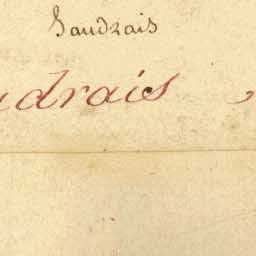 Saudrais
udrais